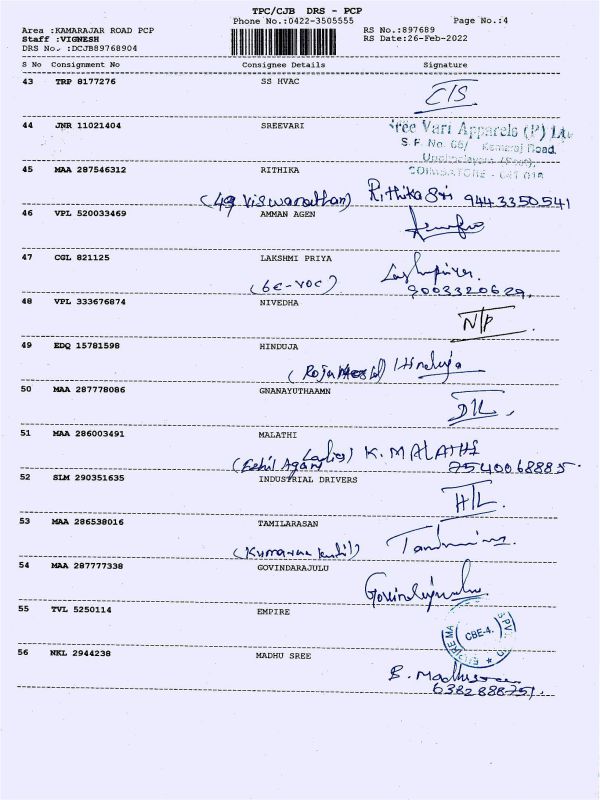 TPC/CJB DRS - PCP
Phone No.:0422-3505555 Page No.:4
Area :KAMARAJAR ROAD PCP RS No.:897689
Staff :VIGNESH RS Date:26-Feb-2022
DRS No. :DCJB89768904
S No Consignment No Consignee Details Signature
43 TRP 8177276 SS HVAC
C/S
44 JNR 11021404 SREEVARI
Sree Vari Apparels (P) Ltd
S. F. No. 66/ Kamaraj Road,
COIMBATORE - 641 015
45 MAA 287546312 RITHIKA
(49 Viswanathan) Rithika Sri 9443350541
46 VPL 520033469 AMMAN AGEN
47 CGL 821125 LAKSHMI PRIYA
(6E-VOC) 9003320629
48 VPL 333676874 NIVEDHA
N/P
49 EDQ 15781598 HINDUJA
Hinduja
50 MAA 287778086 GNANAYUTHAAMN
D/L
51 MAA 286003491 MALATHI
Ladies) K. MALATHI
7540068885.
52 SLM 290351635 INDUSTRIAL DRIVERS
H/L
53 MAA 286538016 TAMILARASAN
54 MAA 287777338 GOVINDARAJULU
Govindarajulu
55 TVL 5250114 EMPIRE
CBE-4.
56 NKL 2944238 MADHU SREE
B. Madhusree
6382888751.